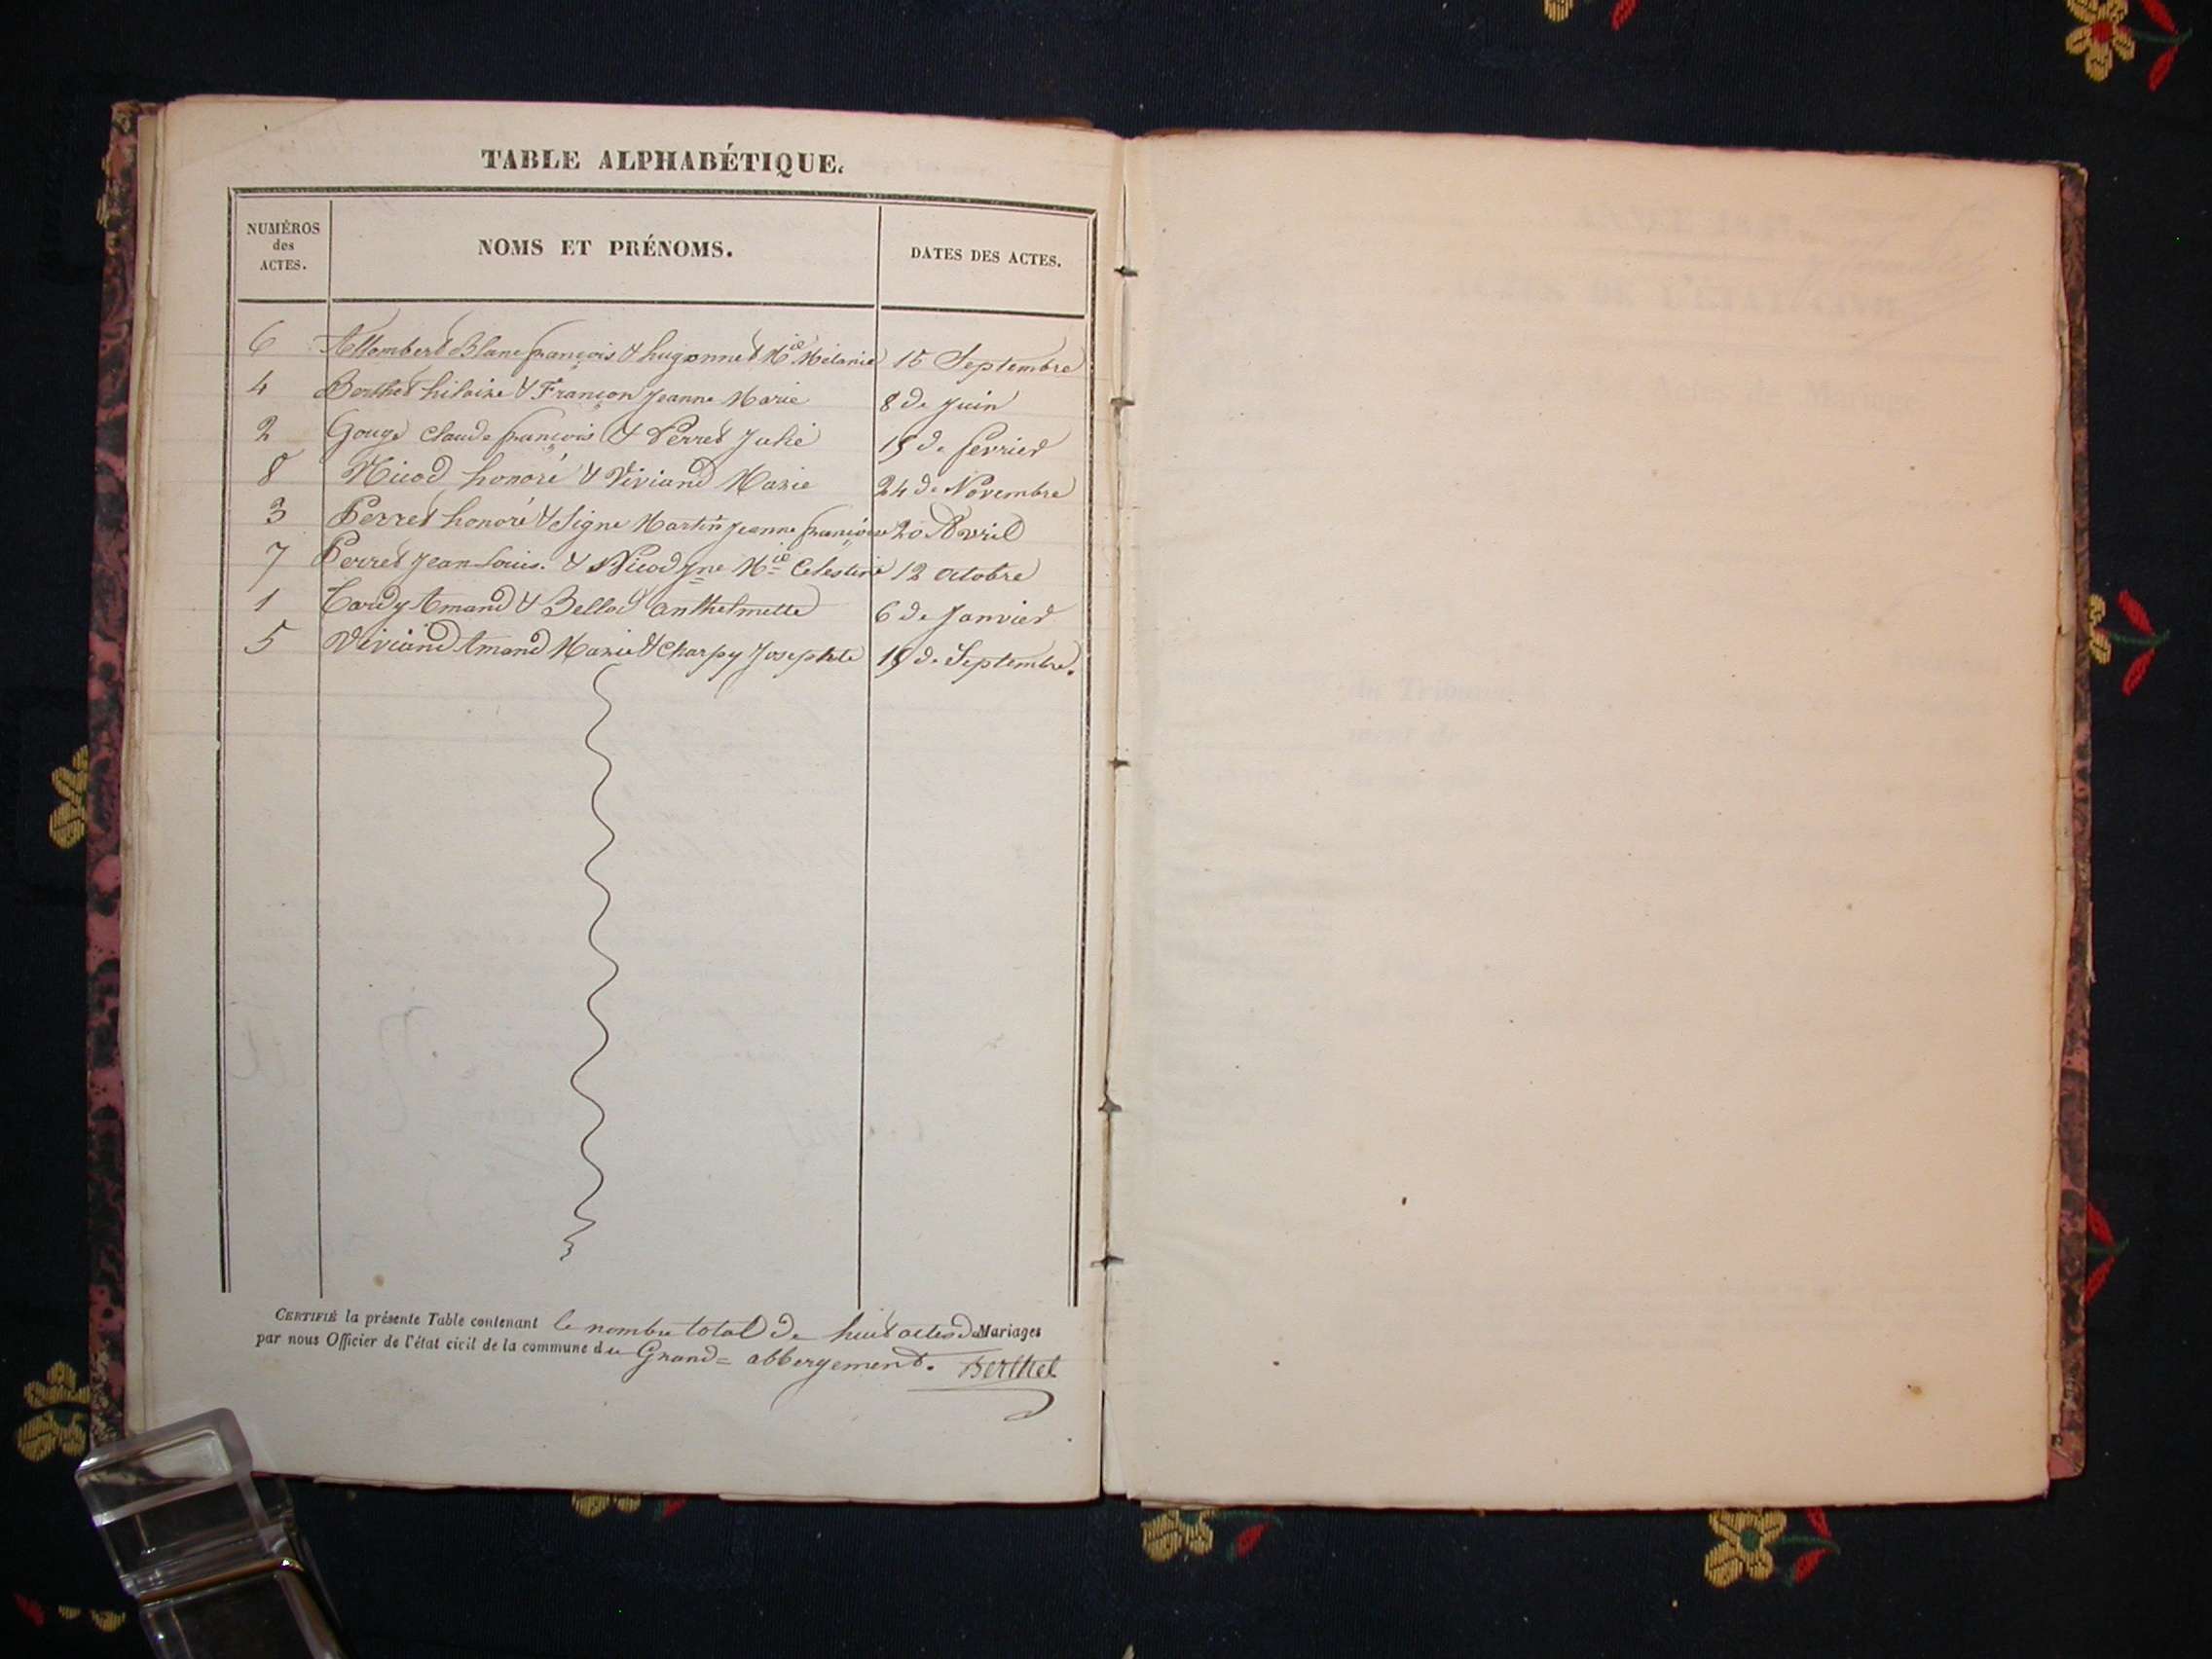 TABLE ALPHABÉTIQUE.
NUMÉROS des ACTES.
NOMS ET PRÉNOMS.
DATES DES ACTES.
6 Allombert Blanc françois & hugonnet Mie Mélanie 15 Septembre
4 Berthet hilaire & Françon Jeanne Marie 8 de Juin
2 Gouge Claude françois & Perret Julie 15 de fevrier
8 Nicod honoré & Viviand Marie 24 de Novembre
3 Perret honoré & Signe Martin Jeanne françoise 20 Avril
7 Perret Jean Louis. & Nicod Jne Mie Celestine 12 octobre
1 Tardy Amand & Bellod anthelmette 6 de Janvier
5 Viviand Amand Marie & Charpy Josephte 15 de Septembre.
CERTIFIÉ la présente Table contenant le nombre total de huit actes de Mariages
par nous Officier de l'état civil de la commune du Grand=abbergement. Berthet